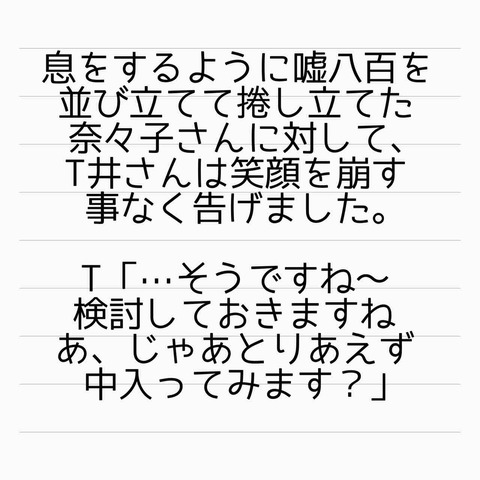 息をするように嘘八百を
並び立てて捲し立てた
奈々子さんに対して、
T井さんは笑顔を崩す
事なく告げました。
T「…そうですね〜
検討しておきますね
あ、じゃあとりあえず
中入ってみます？」